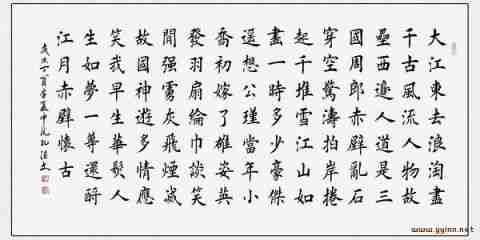 大江東去浪淘盡
千古風流人物故
壘西邊人道是三
國周郎赤壁亂石
穿空驚濤拍岸捲
起千堆雪江山如
畫一時多少豪傑
遥想公瑾當年小
喬初嫁了雄姿英
發羽扇綸巾談笑
閒强虜灰飛煙滅
故國神遊多情應
笑我早生華髮人
生如夢一尊還酹
江月赤壁懷古
www.yyinn.net